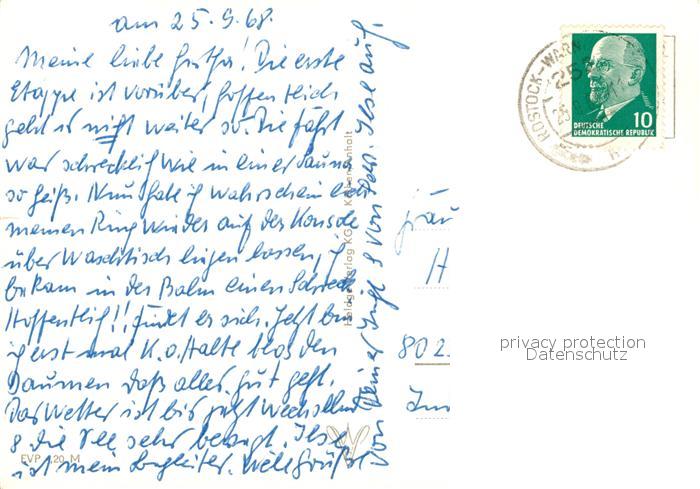 am 25.9.68.
Meine liebe Grethe! Die erste
Etappe ist vorüber, hoffentlich
geht es nicht weiter so. Die Fahrt
war schrecklich wie in einer Sauna
so heiß. Nun habe ich wahrscheinlich
meinen Ring wieder auf der Konsole
über Waschtisch liegen lassen, ich
bekam in der Bahn einen Schreck
Hoffentlich!! findet er sich. Jetzt bin
ich erst mal K.o. Halte bloß den
Daumen daß alles gut geht.
Das Wetter ist bis jetzt wechselnd
& die See sehr bewegt. Ilse
ist mein Begleiter. Viele Grüße
von Deiner & von Ilse auf.
Verlag KG Köthen Anhalt
EVP 0,20 M
Frau
H
802
Im
ROSTOCK-WARN
25.9
DEUTSCHE
DEMOKRATISCHE REPUBLIK
10
privacy protection
Datenschutz